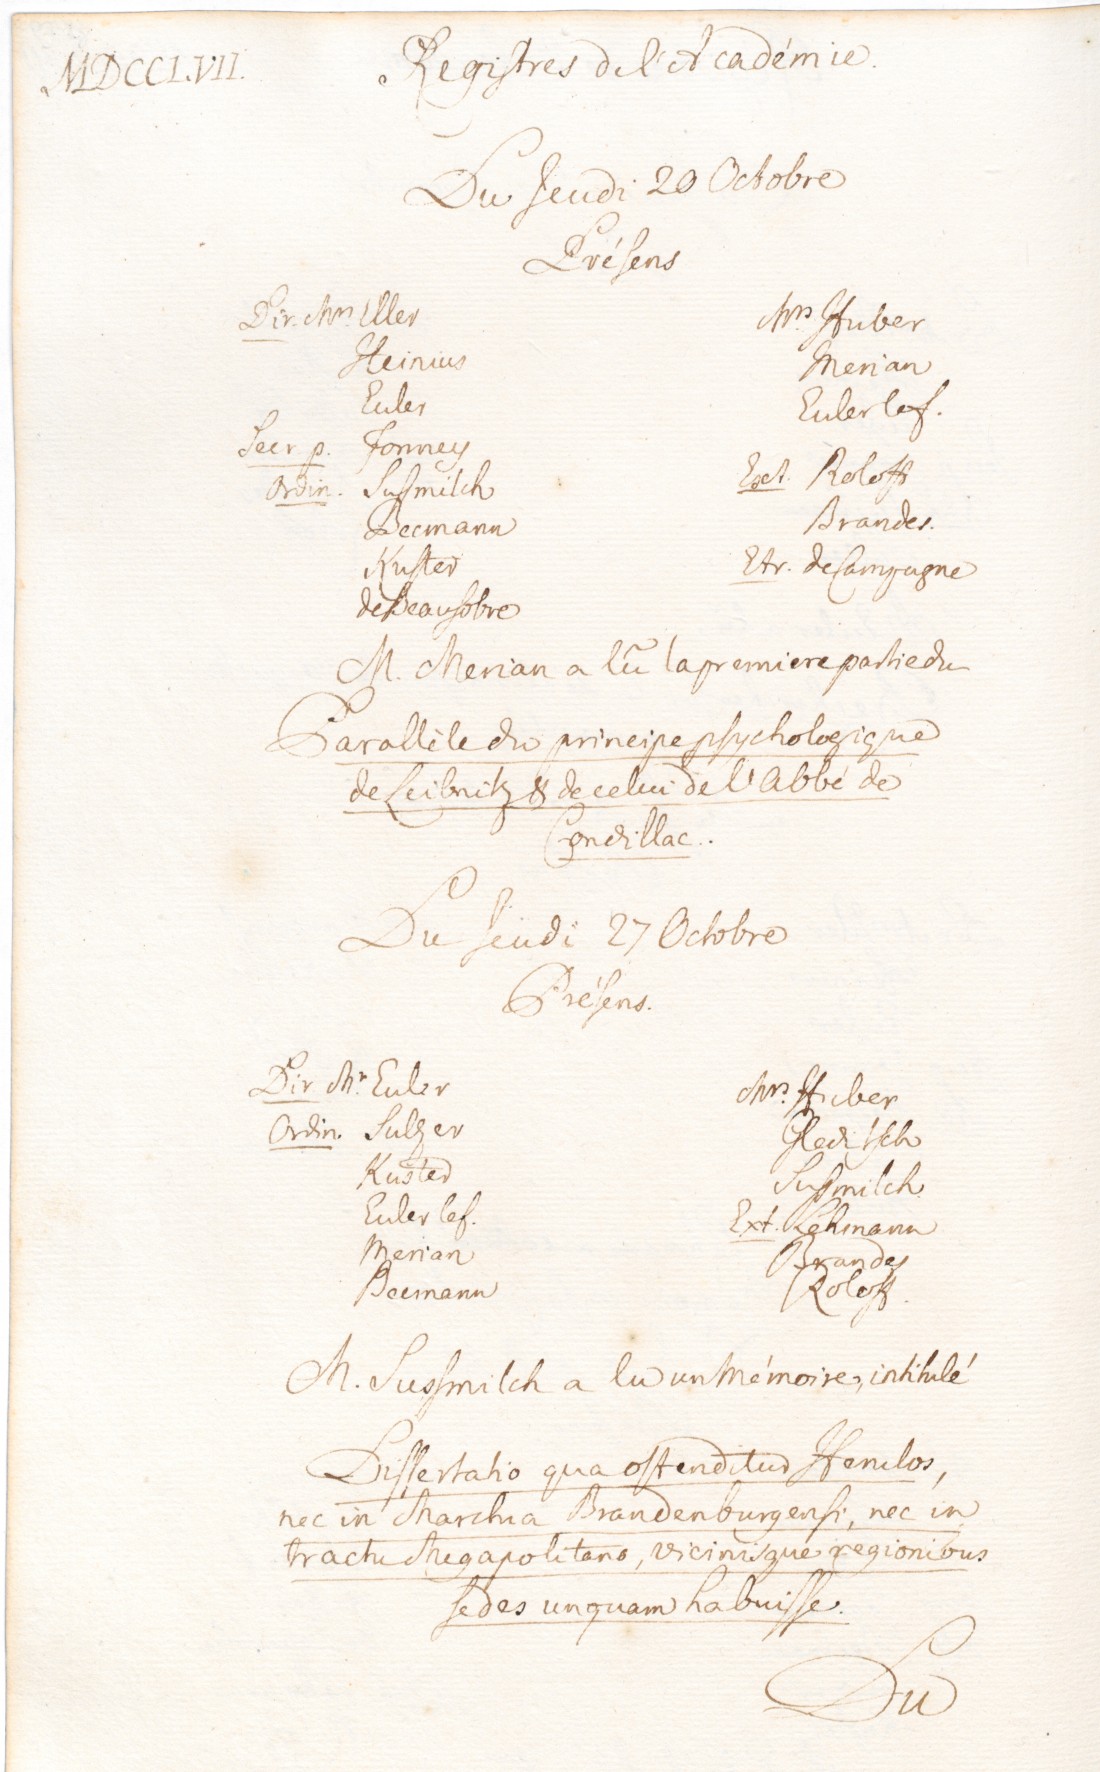 MDCCLVII.
Registres de l'Académie.
Du Jeudi 20 Octobre
Présens
Dir. Mrs. Eller
Heinius
Euler
Secr p. Formey
Ordin. Sussmilch
Becmann
Kuster
de Beausobre
Mrs Huber
Merian
Euler le f.
Ext. Roloff
Brandes.
Etr. de Campagne
M. Merian a lû la premiere partie du
Parallèle du principe psychologique
de Leibnitz & de celui de l'Abbé de
Condillac.
Du Jeudi 27 Octobre
Présens.
Dir Mr. Euler
Ordin. Sulzer
Kuster
Euler le f.
Merian
Becmann
Mrs. Huber
Gleditsch
Sussmilch
Ext. Lehmann
Brandes
Roloff.
M. Sussmilch a lu un Mémoire, intitulé
Dissertatio qua ostenditur Herulos,
nec in Marchia Brandenburgensi, nec in
tractu Megapolitano, vicinisque regionibus
sedes unquam habuisse.
Du